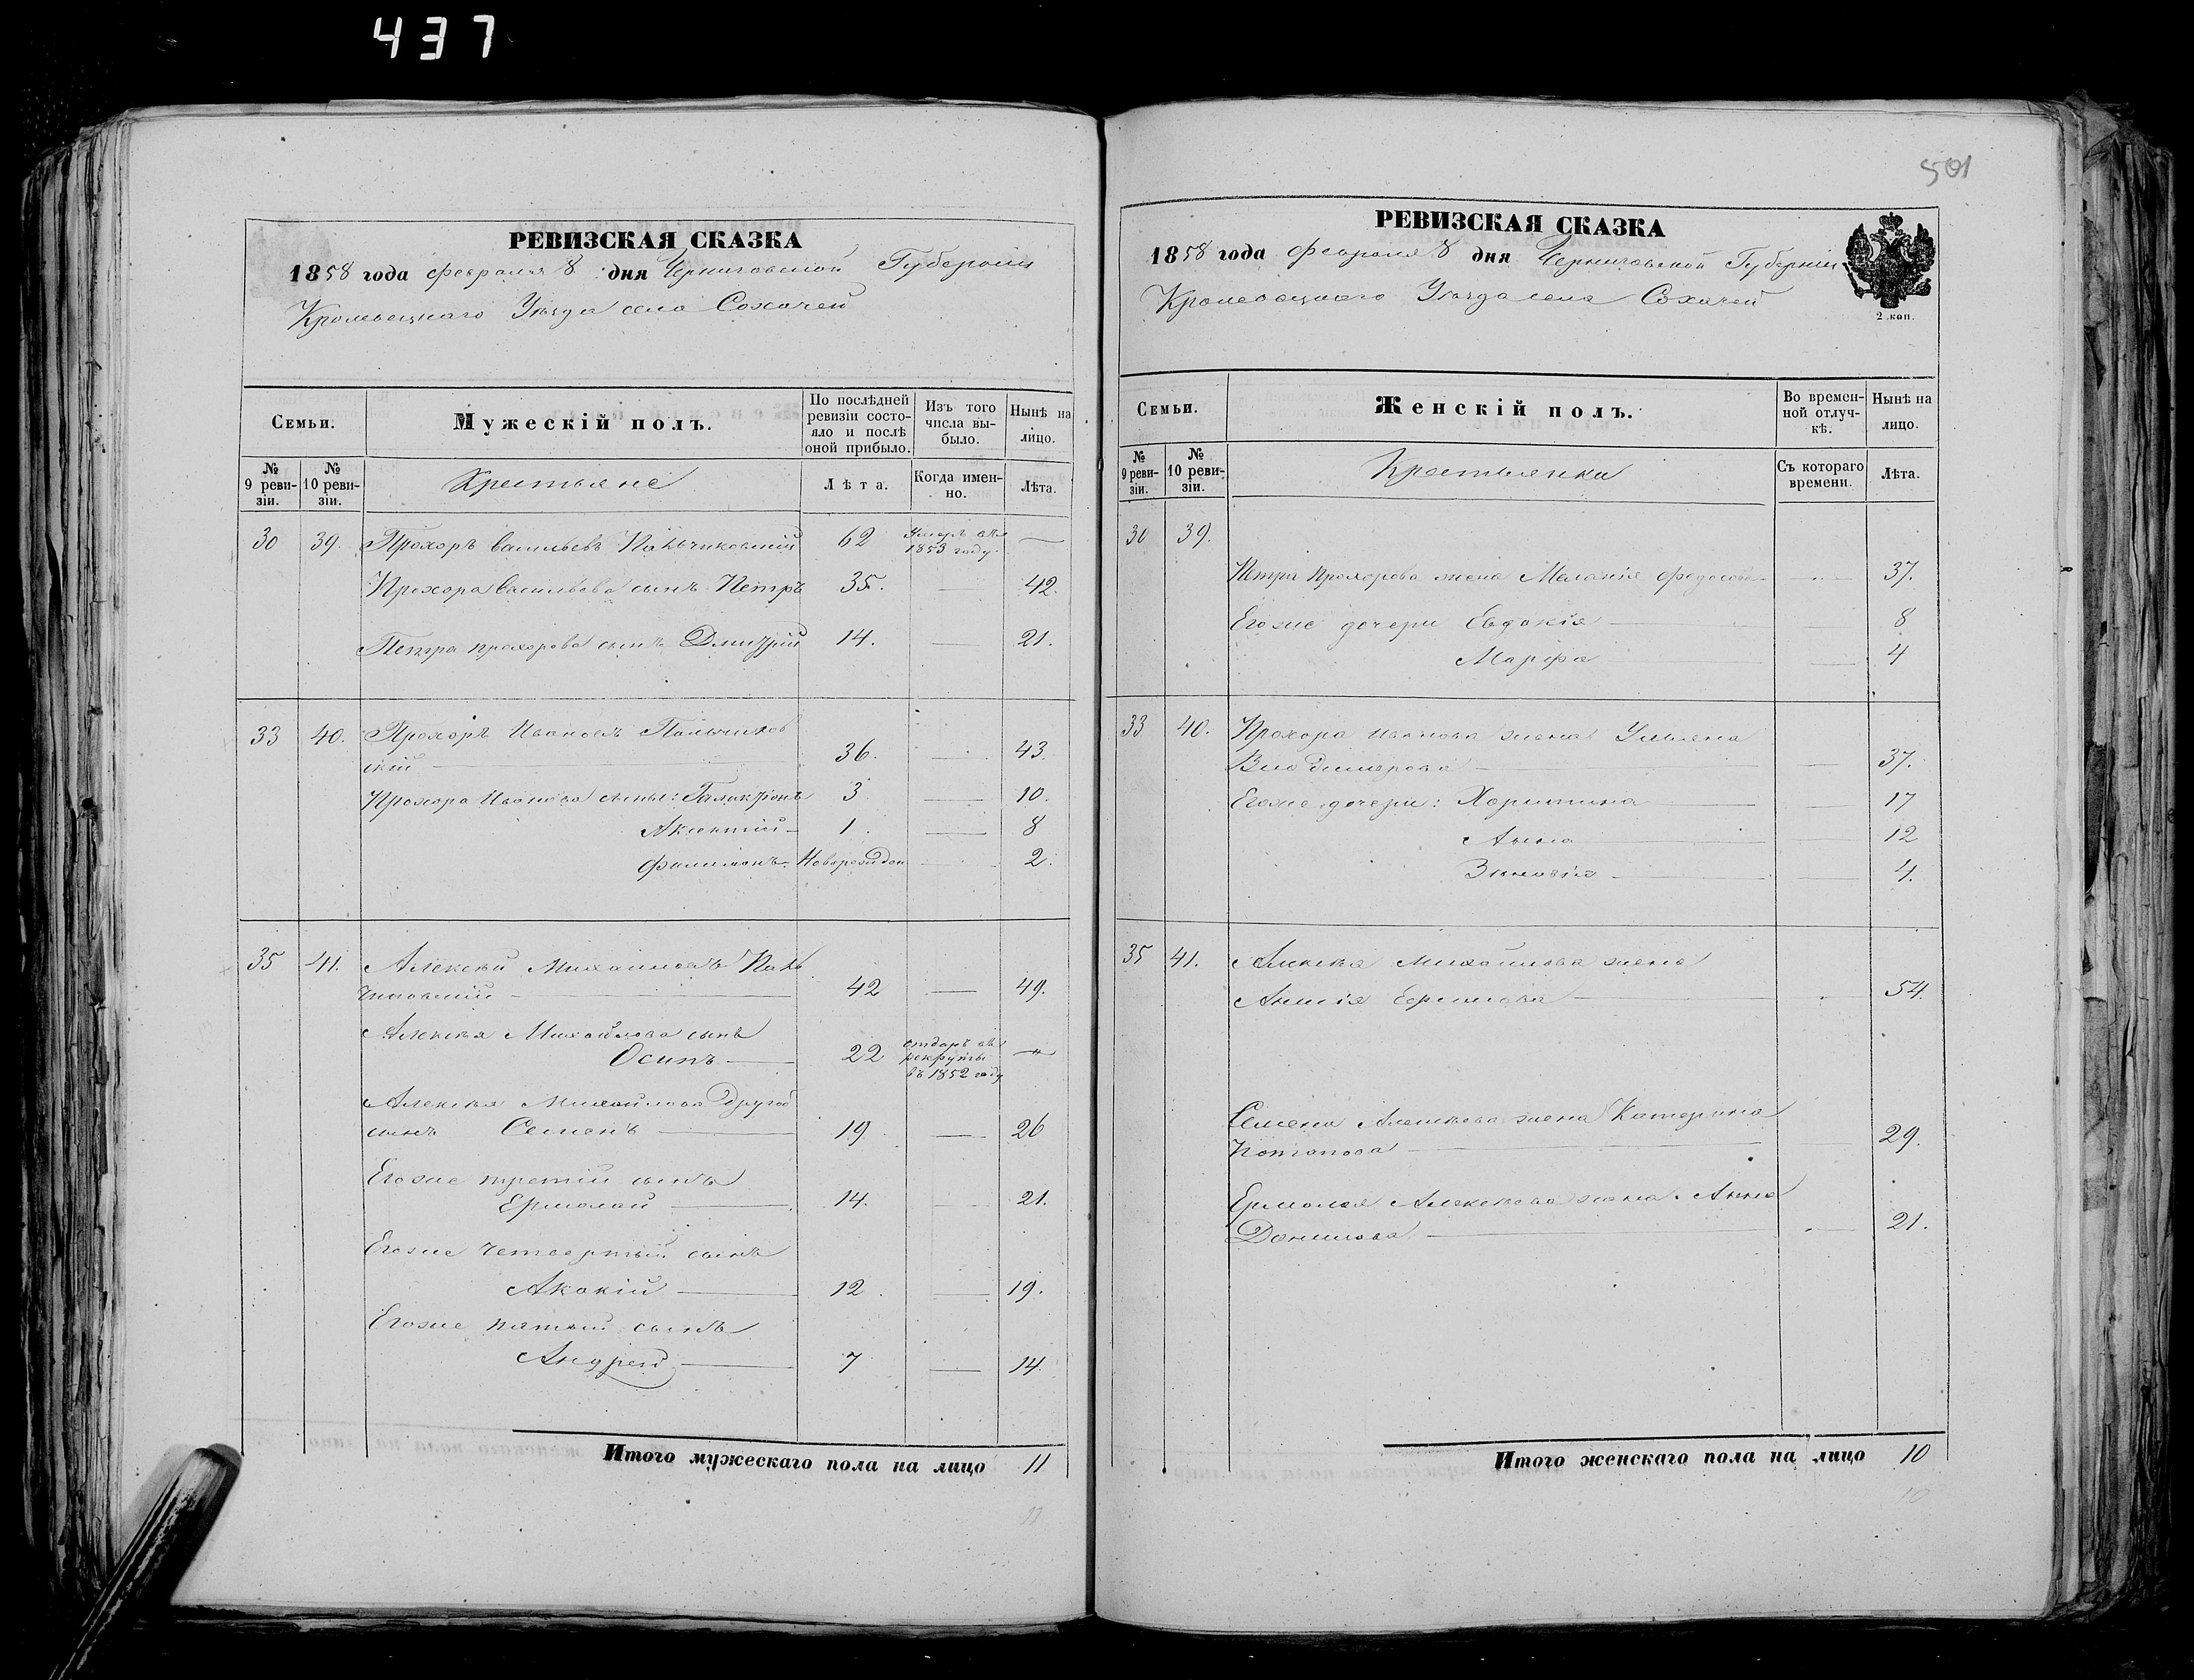 437
РЕВИЗСКАЯ СКАЗКА
1858 года февраля 8 дня Черниговской Губернии
Кролевецкаго Уѣзда села Сохачей
Семьи.
Мужескій полъ.
По послѣдней ревизіи состояло и послѣ оной прибыло.
Изъ того числа выбыло.
Нынѣ на лицо.
№ 9 ревизіи.
№ 10 ревизіи.
Крестьяне
Лѣта.
Когда именно.
Лѣта.
30 39. Прохоръ Васильевъ Пальчиковскій 62 Умеръ въ 1853 году. —
Прохора Васильева сынъ Петръ 35. — 42.
Петра Прохорова сынъ Дмитрій 14. — 21.
33 40. Прохоръ Ивановъ Пальчиков
скій — 36. — 43.
Прохора Иванова сыны: Галактіонъ 3 — 10.
Аксентій — 1. — 8
Филимонъ — Новорожден — 2.
35 41. Алексѣй Михайловъ Паль
чиковскій — 42 — 49.
Алексѣя Михайлова сынъ
Осипъ — 22 отданъ въ рекруты въ 1852 году —
Алексѣя Михайлова другой
сынъ Семенъ — 19 — 26
Егоже третій сынъ
Ермолай — 14. — 21.
Егоже четвертый сынъ
Акакій — 12. — 19.
Егоже пятый сынъ
Андрей — 7 — 14.
Итого мужескаго пола на лицо 11
11
501
РЕВИЗСКАЯ СКАЗКА
1858 года февраля 8 дня Черниговской Губерніи
Кролевецкаго Уѣзда села Сохачей
2 коп.
Семьи.
Женскій полъ.
Во временной отлучкѣ.
Нынѣ на лицо.
№ 9 ревизіи.
№ 10 ревизіи.
Крестьянки
Съ котораго времени.
Лѣта.
30 39.
Петра Прохорова жена Маланія Федосова — 37.
Егоже дочери Евдокія — 8
Марфа — 4
33 40. Прохора Иванова жена Ульяна
Владимерова — 37.
Егоже дочери: Харитина — 17
Анна — 12
Зиновія — 4.
35 41. Алексѣя Михайлова жена
Ефимова — 54.
Семена Алексѣева жена Катерина
Потапова — 29.
Ермолая Алексѣева жена Анна
Данилова — 21.
Итого женскаго пола на лицо 10
10